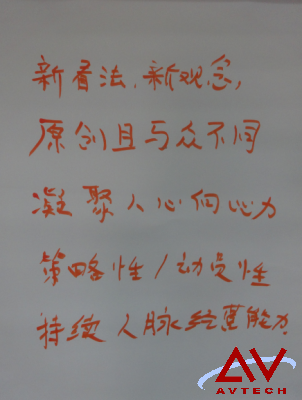 新看法、新观念,
原创且与众不同
凝聚人心向心力
策略性/动员性
持续人脉经营能力
AV
AVTECH